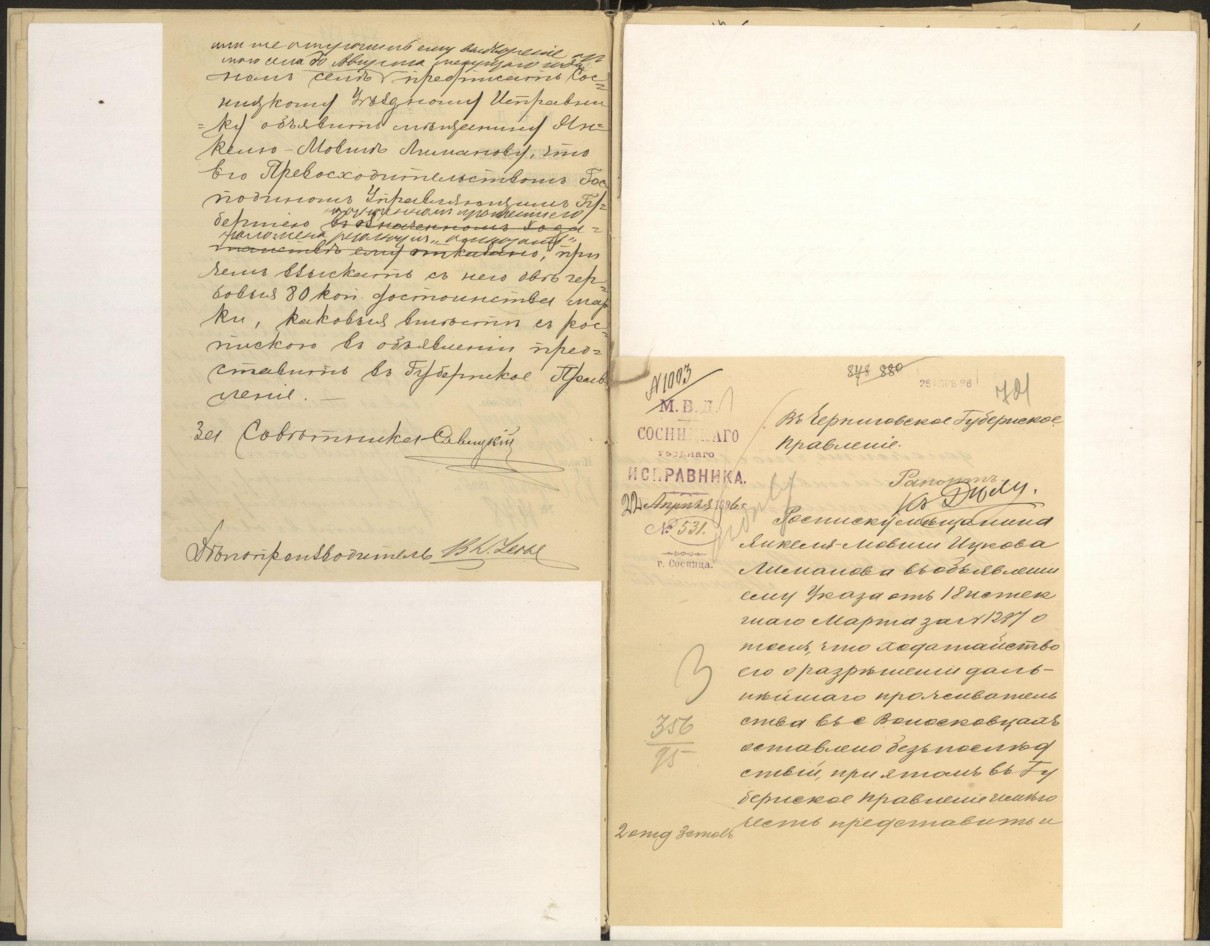 или же отсрочить ему выдворение
сего села до Августа текущего года
номъ селѣ предписать Сос=
ницкому Уѣздному Исправни
=ку объявить мѣщанину Ян=
келю-Мовшѣ Лиманову, что
Его Превосходительствомъ Гос
подиномъ Управляющимъ Гу=
берніею въ означенномъ хода=
положена резолюція „
тайствѣ ему отказано, при
чемъ взыскать съ него двѣ гер=
бовыя 80 коп. достоинства мар
ки, каковыя вмѣстѣ съ рос=
пиского въ объявленіи пред=
ставить въ Губернское Прав
леніе. —
За Совѣтника Савицкій
Дѣлопроизводитель
№ 1003
М. В. Д.
СОСНИЦКАГО
уѣзднаго
ИСПРАВНИКА.
22 Апрѣля 1896 г.
№ 531.
г. Сосница.
848 880
701
Въ Черниговское Губернское
Правленіе.
Рапортъ
Къ Дѣлу.
Росписку мѣщанина
Янкеля-Мовши Ицкова
Лиманова въ объявленіи
ему Указа отъ 18 истек
шаго Марта за № 1287 о
томъ, что ходатайство
его о разрѣшеніи даль-
нѣйшаго проживатель
ства въ с Волосковцахъ
оставлено безъ послѣд
ствій, при этомъ въ Гу
бернское Правленіе имѣю
честь представить и
3
356
95
2 отд 3 столъ